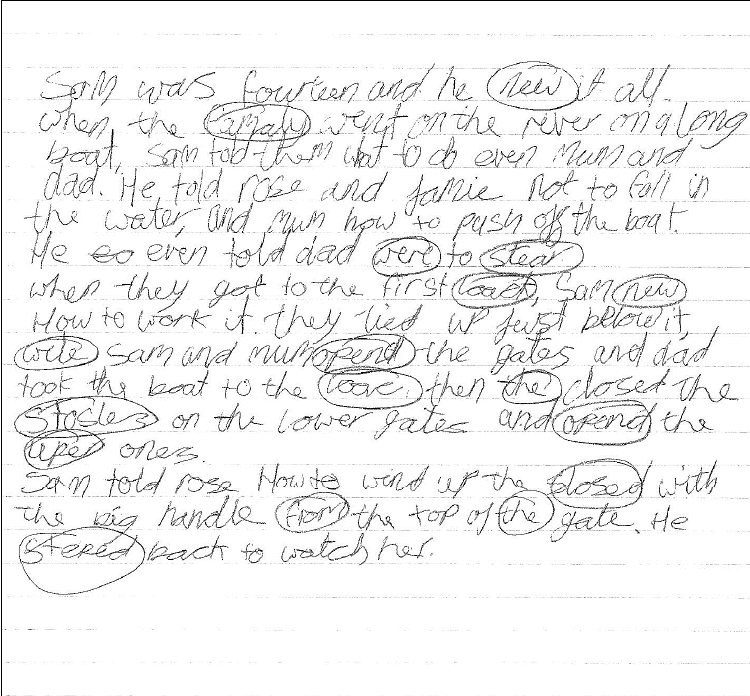 Sam was fourteen and he new it all.
when the famaly went on the river on a long
boat, Sam told them wat to do even Mum and
dad. He told rose and Jamie not to fall in
the water, and mum how to push off the boat.
He even told dad were to stear
when they got to the first loack, Sam new
How to work it. they tied up just below it,
wile Sam and mum opend the gates and dad
took the boat to the loack. then the closed the
on the lower gates and opend the
uper ones.
Sam told rose How to wind up the closed with
the big handle from the top of the gate. He
stered back to watch her.